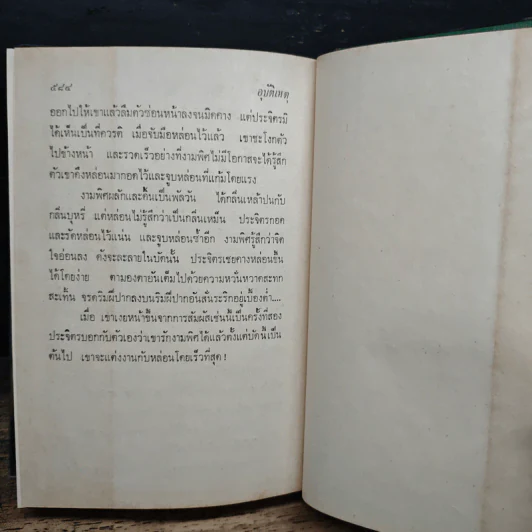 ๕๔๘ อุบัติเหตุ
ออกไปให้เขาแล้วลืมตัวซ่อนหน้าลงจนมิดคาง แต่ประจิตรมิ
ได้เห็นเป็นที่ควรติ เมื่อจับมือหล่อนไว้แล้ว เขาชะโงกตัว
ไปข้างหน้า และรวดเร็วอย่างที่งามพิศไม่มีโอกาสจะได้รู้สึก
ตัวเขาดึงหล่อนมากอดไว้และจูบหล่อนที่แก้มโดยแรง
งามพิศผลักและดิ้นเป็นพัลวัน ได้กลิ่นเหล้าปนกับ
กลิ่นบุหรี่ แต่หล่อนไม่รู้สึกว่าเป็นกลิ่นเหม็น ประจิตรกอด
และรัดหล่อนไว้แน่น และจูบหล่อนซ้ำอีก งามพิศรู้สึกว่าจิต
ใจอ่อนลง ดังจะละลายในบัดนั้น ประจิตรเชยคางหล่อนขึ้น
ได้โดยง่าย ตามองตาอันเต็มไปด้วยความหวั่นหวาดสะทก
สะเทิ้น จรดริมฝีปากลงบนริมฝีปากอันสั่นระริกอยู่เบื้องต่ำ....
เมื่อ เขาเงยหน้าขึ้นจากการสัมผัสเช่นนี้เป็นครั้งที่สอง
ประจิตรบอกกับตัวเองว่าเขารักงามพิศได้แล้วตั้งแต่บัดนี้เป็น
ต้นไป เขาจะแต่งงานกับหล่อนโดยเร็วที่สุด!